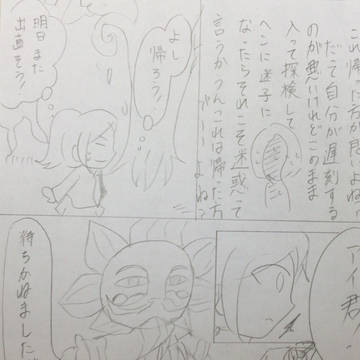 これ帰った方が良いよね
だって自分が遅刻する
のが悪いけれどこのまま
入って探検して
へこに迷子に
なったらそれこそ迷惑って
言うかうんこれは帰った方
よね?
よし
帰ろう!
明日また
出直そう!
アイ君
待ちかねました